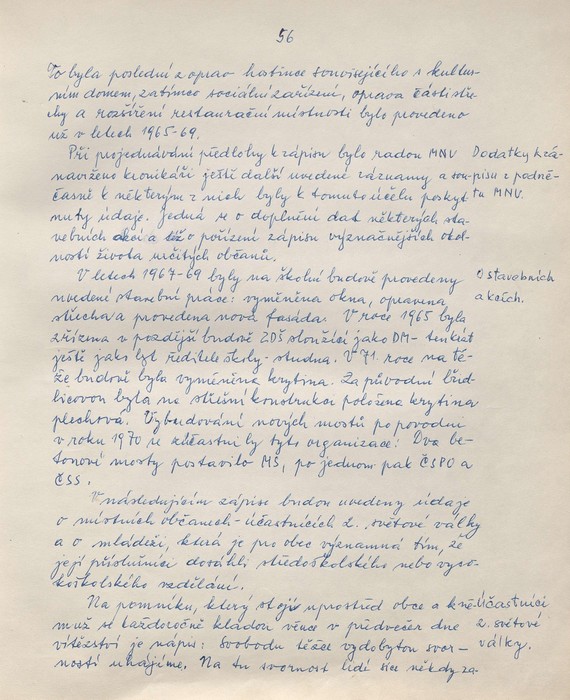 56
To byla poslední z oprav hostince souvisejícího s kultur-
ním domem, zatímco sociální zařízení, oprava části stře-
chy a rozšíření restaurační místnosti bylo provedeno
už v letech 1965-69.
Při projednávání předlohy k zápisu bylo radou MNV
navrženo kronikáři ještě další uvedené záznamy a sou-
časně k některým z nich byly k tomuto účelu poskyt
nuty údaje. Jedná se o doplnění dat některých sta-
vebních akcí a též o pořízení zápisu význačnějších okol-
ností života určitých občanů.
Dodatky k zá-
pisu z podně-
tu MNV.
V letech 1967-69 byly na školní budově provedeny
uvedené stavební práce: vyměněna okna, opravena
střecha a provedena nová fasáda. V roce 1965 byla
zřízena v pozdější budově ZDŠ sloužící jako DM- tenkrát
ještě jako byt ředitele školy - studna. V 71. roce na té-
že budově byla vyměněna krytina. Za původní břid-
licovou byla na střešní konstrukci položena krytina
plechová. Vybudování nových mostů po povodni
v roku 1970 se zúčastnily tyto organizace: Dva be-
tonové mosty postavilo MS, po jednom pak ČSPO a
ČSS.
O stavebních
akcích.
V následujícím zápise budou uvedeny údaje
o místních občanech - účastnících 2. světové války
a o mládeži, která je pro obec významná tím, že
její příslušníci dosáhli středoškolského nebo vyso-
koškolského vzdělání.
Na pomníku, který stojí uprostřed obce a k ně-
muž se každoročně kladou věnce v předvečer dne
vítězství je nápis: Svobodu těžce vydobytou svor-
ností uhájíme. Na tu svornost lidé sice někdy za-
Účastníci
2. světové
války.